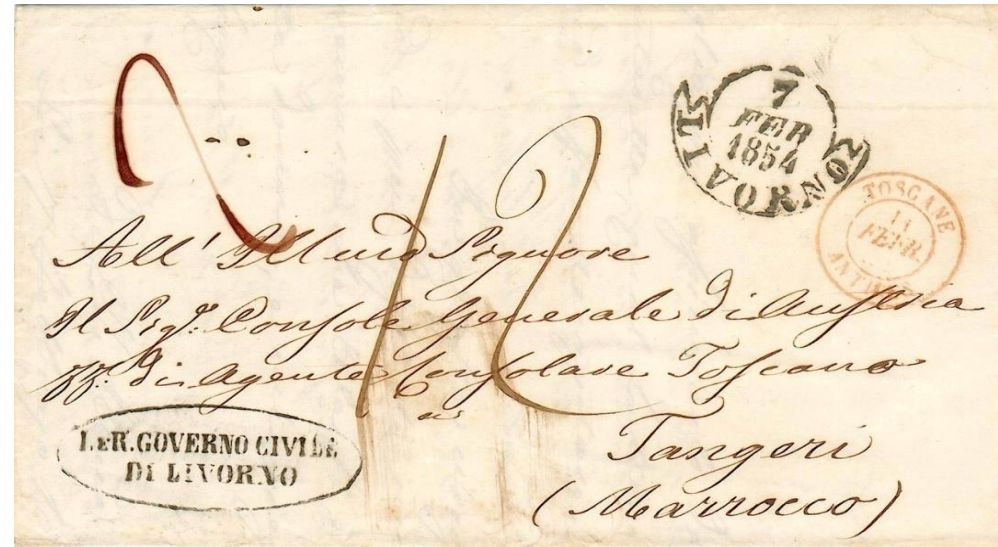 7
FEB
1854
LIVORNO
TOSCANE
11
FEVR.
ANTIBES
2
12
All' Illmo Signore
Il Sigr. Console Generale di Austria
ff. di Agente Consolare Toscano
in
Tangeri
(Marrocco)
I. E R. GOVERNO CIVILE
DI LIVORNO